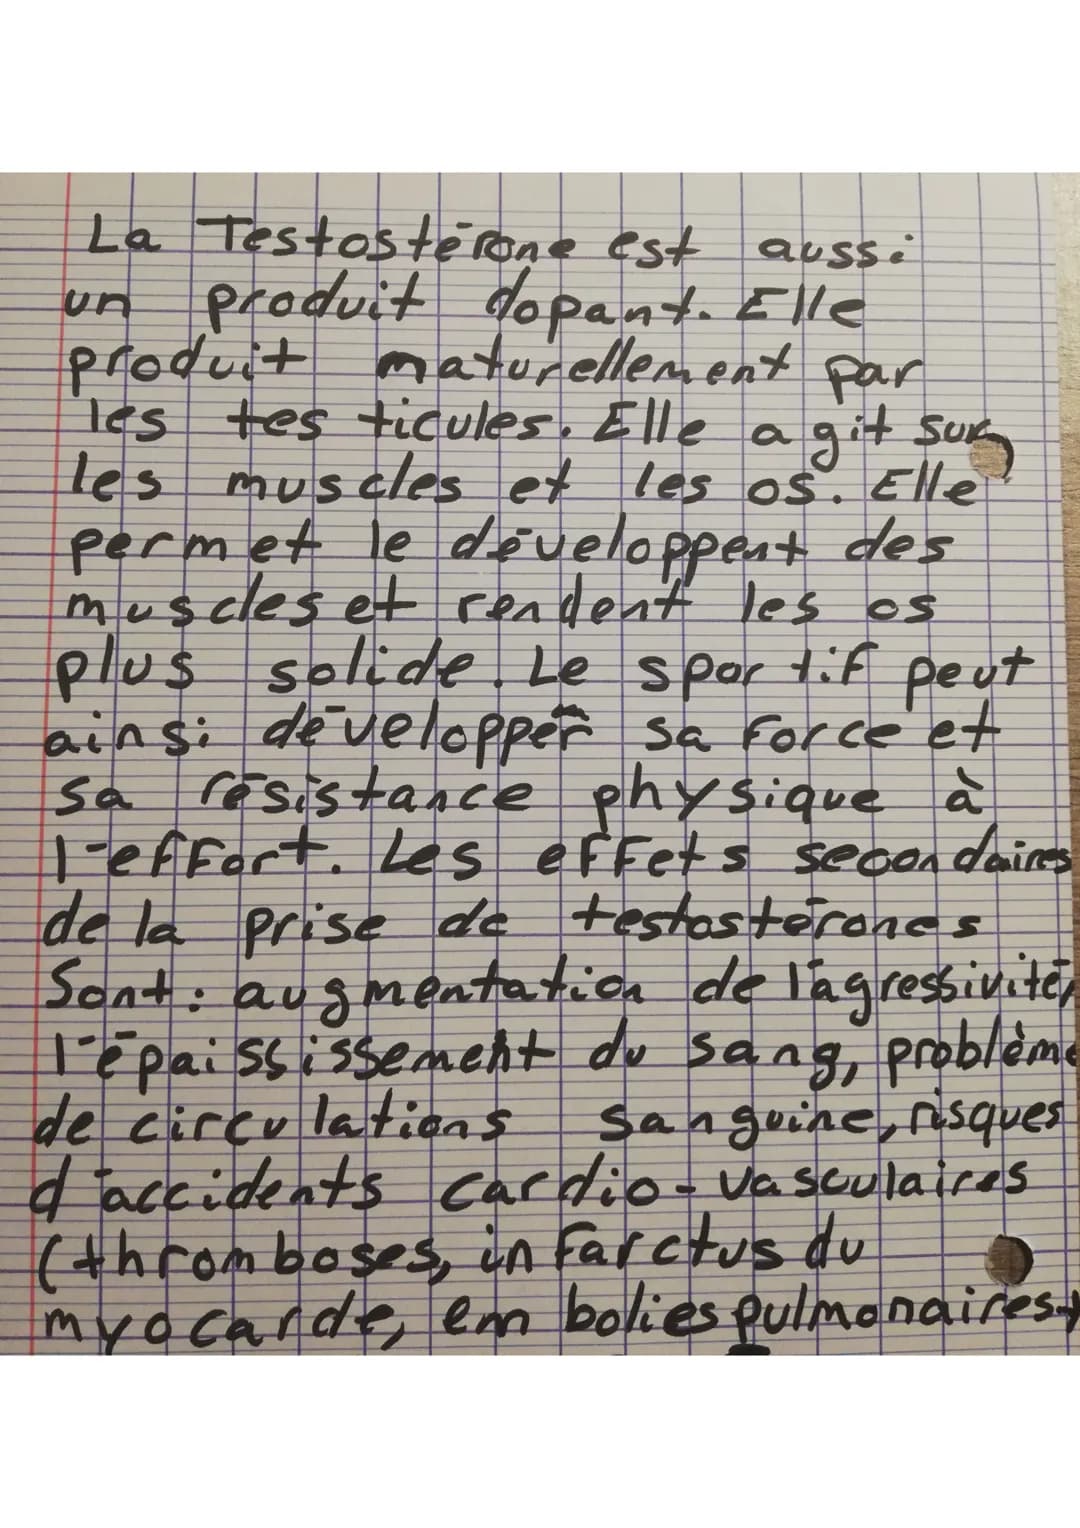 La Testostérone est aussi
un produit dopant. Elle
produit maturellement par
les testicules. Elle agit sur
les muscles et les os. Elle
permet le développent des
muscles et rendent les os
plus solide. Le sportif peut
ainsi développer sa force et
sa résistance physique à
l'effort. Les effets secondaires
de la prise de testostérones
Sont : augmentation de l'agressivité,
l'épaississement du sang, problème
de circulations sanguine, risques
d'accidents cardio-vasculaires
(thromboses, infarctus du
myocarde, embolies pulmonaires